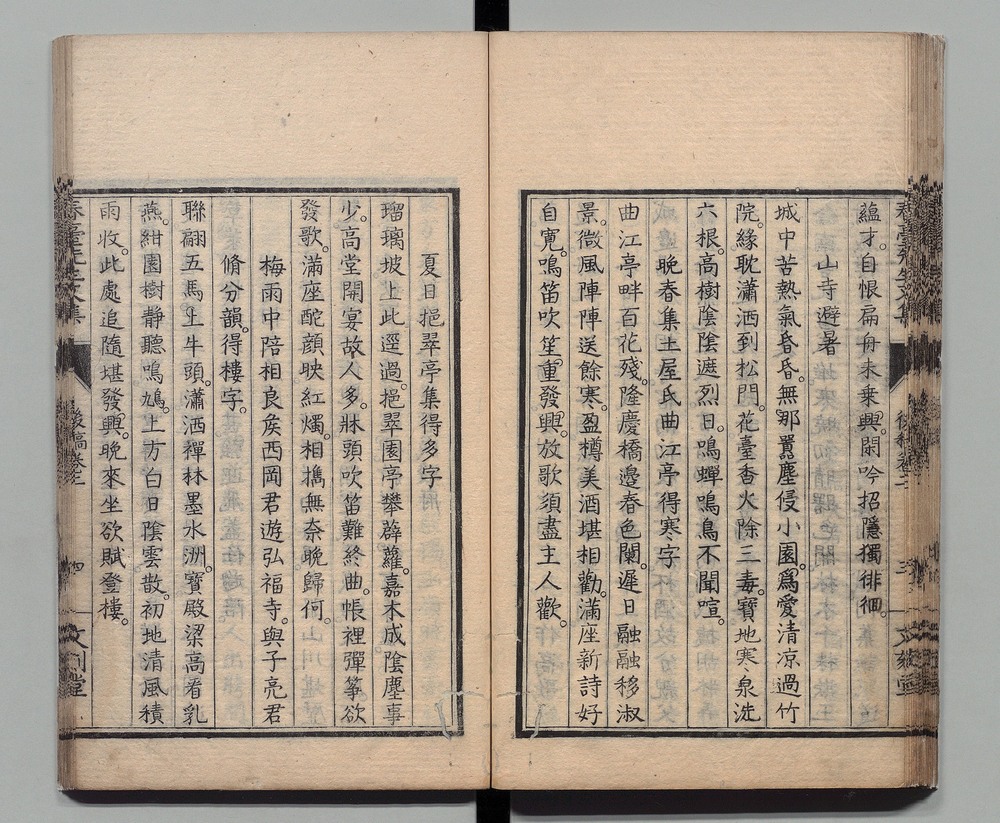 蘊才。自恨扁舟未乘興。閑吟招隱獨徘徊。
山寺避暑
城中苦熱氣昏昏。無那囂塵侵小園。爲愛清凉過竹
院。緣耽瀟洒到松門。花臺香火除三毒。寶地寒泉洗
六根。高樹陰陰遮烈日。鳴蟬鳴鳥不聞喧。
晚春集土屋氏曲江亭得寒字
曲江亭畔百花殘。隆慶橋邊春色闌。遲日融融移淑
景。微風陣陣送餘寒。盈樽美酒堪相勸。滿座新詩好
自寬。鳴笛吹笙。重發興。放歌須盡主人歡。
夏日挹翠亭集得多字
瑠璃坡上此逕過。挹翠園亭攀薜蘿。嘉木成陰塵事
少。高堂開宴故人多。牀頭吹笛難終曲。帳裡彈箏。欲
發歌。滿座酡顏映紅燭。相攜無奈晚歸何。
梅雨中陪相良矦西岡君遊弘福寺。與子亮君
脩分韻。得樓字。
聯翩五馬。上牛頭。瀟洒禪林墨水洲。寶殿梁高看乳
燕。紺園樹靜聽鳴鳩。上方白日陰雲散。初地清風積
雨收。此處追隨堪發興。晚來坐欲賦登樓。
後稿卷之
四
文刻堂